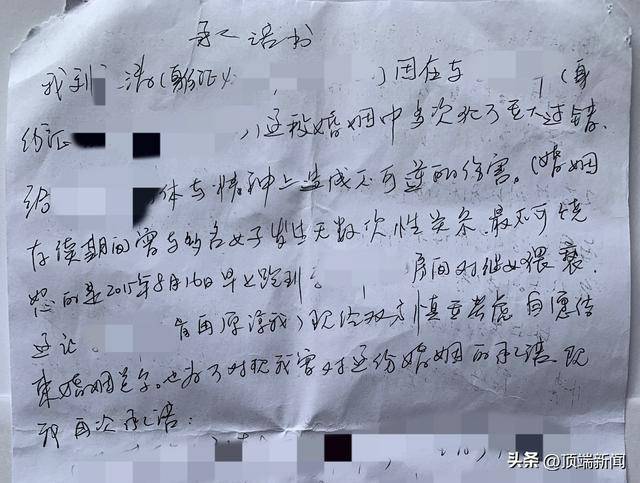 承诺书
我刘 浩(身份证 )因在与 (身
份证 )这段婚姻中多次犯了重大过错.
给 体与精神上造成不可逆的伤害。(婚姻
存续期间曾与多名女子发生无数次性关系.最不可饶
恕的是2015年8月16日早上跑到 房间对继女猥亵.
这让 肯再原谅我)现经双方慎重考虑自愿结
束婚姻关系。也为了对现我曾对这份婚姻的承诺现
我再次承诺:
头条 @顶端新闻